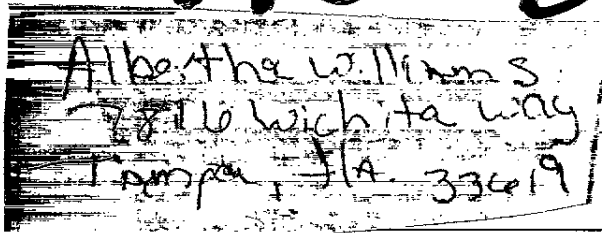 Albertha Williams
7816 Wichita Way
Tampa, Fla. 33619